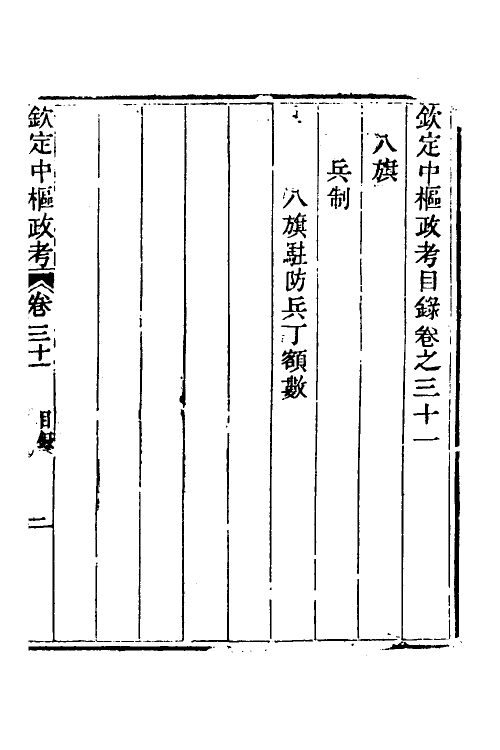 欽定中樞政考目錄卷之三十一
八旗
兵制
八旗駐防兵丁額數
欽定中樞政考
卷三十一
目錄
二